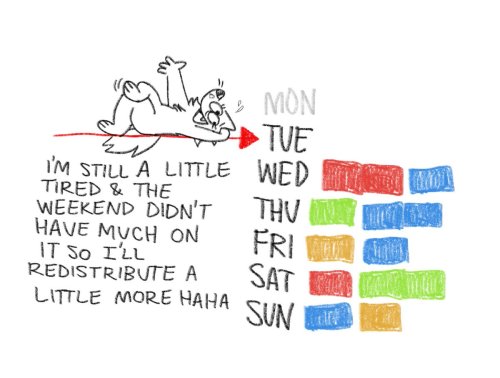 MON
TUE
WED
THU
FRI
SAT
SUN
I'M STILL A LITTLE
TIRED & THE
WEEKEND DIDN'T
HAVE MUCH ON
IT SO I'LL
REDISTRIBUTE A
LITTLE MORE HAHA